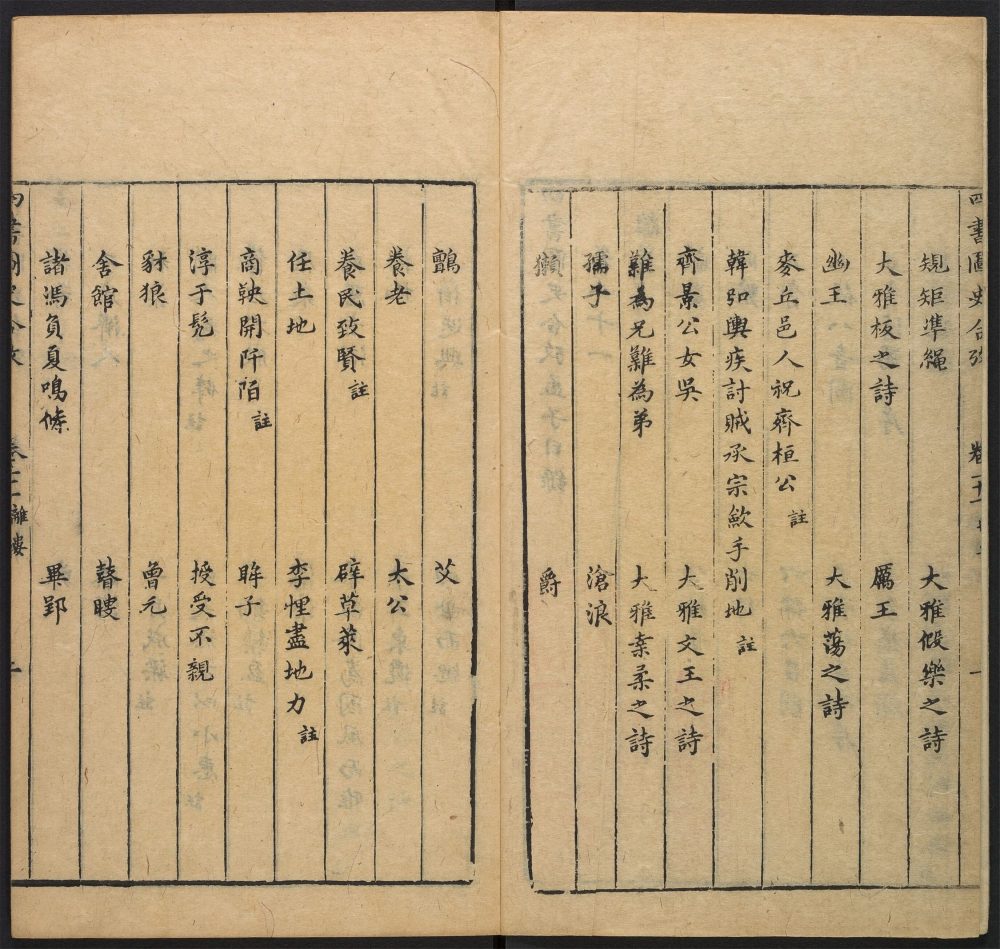 四書圖史合攷 卷二十一 一
規矩準繩 大雅假樂之詩
大雅板之詩 厲王
幽王 大雅蕩之詩
麥丘邑人祝齊桓公註
韓弘輿疾討賊承宗斂手削地註
齊景公女吳 大雅文王之詩
難為兄難為弟 大雅桑柔之詩
孺子 滄浪
獺 爵
鸇 艾
養老 太公
養民致賢註 辟草萊
任土地 李悝盡地力註
商鞅開阡陌註 眸子
淳于髡 授受不親
豺狼 曾元
舍館 瞽瞍
諸馮負夏鳴條 畢郢
離婁